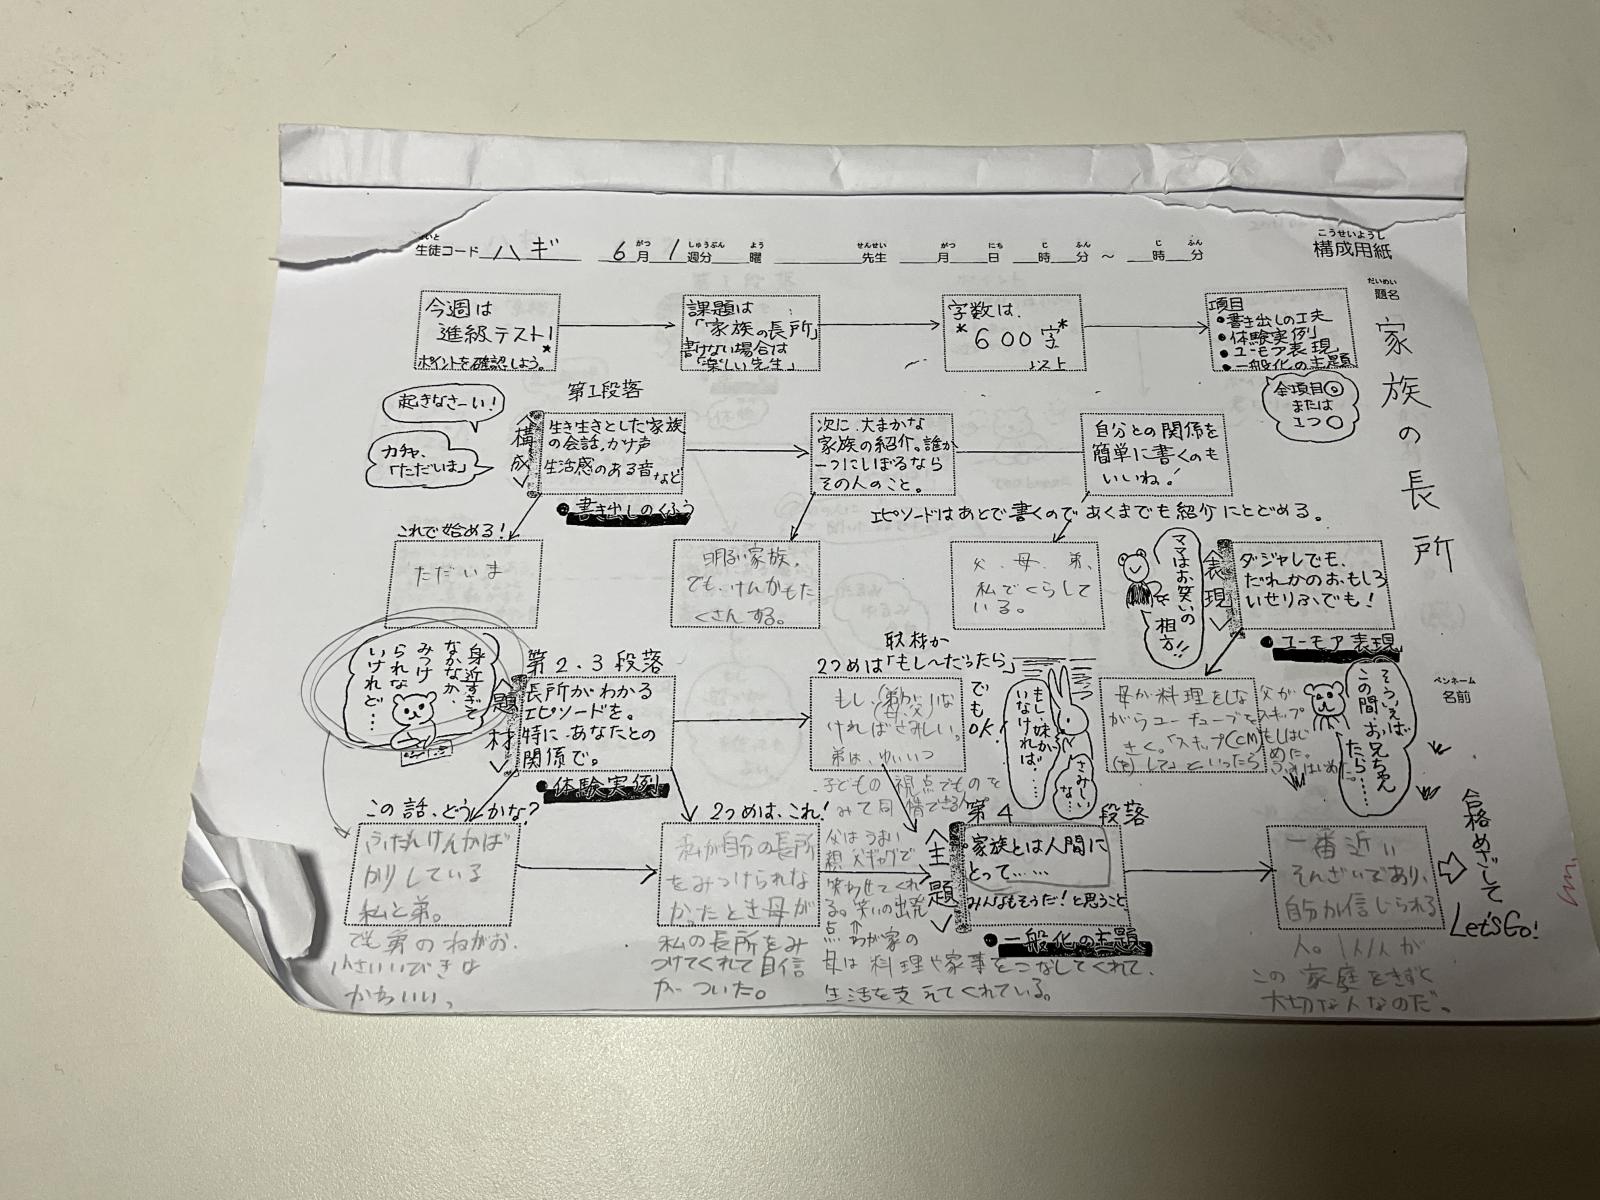 せいと
生徒コード ハギ 6月1週分 曜 先生 月 日 時 分 ～ 時 分
がつ しゅうぶん よう せんせい がつ にち じ ふん じ ふん
こうせいようし
構成用紙
だいめい
題名
家族の長所
ペンネーム
名前
今週は
進級テスト!
ポイントを確認しよう。
課題は
「家族の長所」
書けない場合は
「楽しい先生」
字数は、
*600字*
以上
項目
●書き出しの工夫
●体験実例
●ユーモア表現
●一般化の主題
全項目◎
または
1つ○
起きなさーい!
カチャ、
「ただいま」
第1段落
<構成>
生き生きとした家族
の会話、かけ声
生活感のある音など
●書き出しのくふう
次に、大まかな
家族の紹介。誰か
一つにしぼるなら
その人のこと。
自分との関係を
簡単に書くのも
いいね!
エピソードはあとで書くので、あくまでも紹介にとどめる。
これで始める!
ただいま
明るい家族。
でも、けんかもた
くさんする。
父、母、弟、
私でくらして
いる。
ママはお笑いの
相方!!
<表現>
ダジャレでも、
だれかのおもしろ
いせりふでも!
●ユーモア表現
身近すぎて
なかなか、
みつけ
られな
いけれど…
第2.3段落
<題材>
長所がわかる
エピソードを。
特に、あなたとの
関係で。
●体験実例
取材か
2つめは「もし〜だったら」
でも
OK!
もし、(弟)が
(母、父)いな
ければさみしい。
弟は、ゆいいつ
子どもの視点でものを
みて同情できる人
もし、妹が
いなければ…
さみしい
な…
母が料理をしな
がらユーチューブを
きく。「スキップ(CM)
(を)して」といったら
父が
スキップ
もしはじ
めた。
そういえば
この間、お兄ちゃん
たら……
この話、どうかな?
ふだんけんかば
かりしている
私と弟。
でも弟のねがお、
小さいいびきは
かわいい。
2つめは、これ!
私が自分の長所
をみつけられな
かったとき母が
私の長所をみ
つけてくれて自信
がついた。
父はうまい
親父ギャグで
笑わせてくれ
る。笑いの出発
点
わが家の
母は料理や家事をこなしてくれて、
生活を支えてくれている。
第4段落
<主題>
家族とは人間に
とって……
みんなもそうだ!と思うこと
●一般化の主題
一番近い
そんざいであり、
自分が信じられる
人。1人1人が
この家庭をきずく
大切な人なのだ。
合格めざして
Let'sGo!